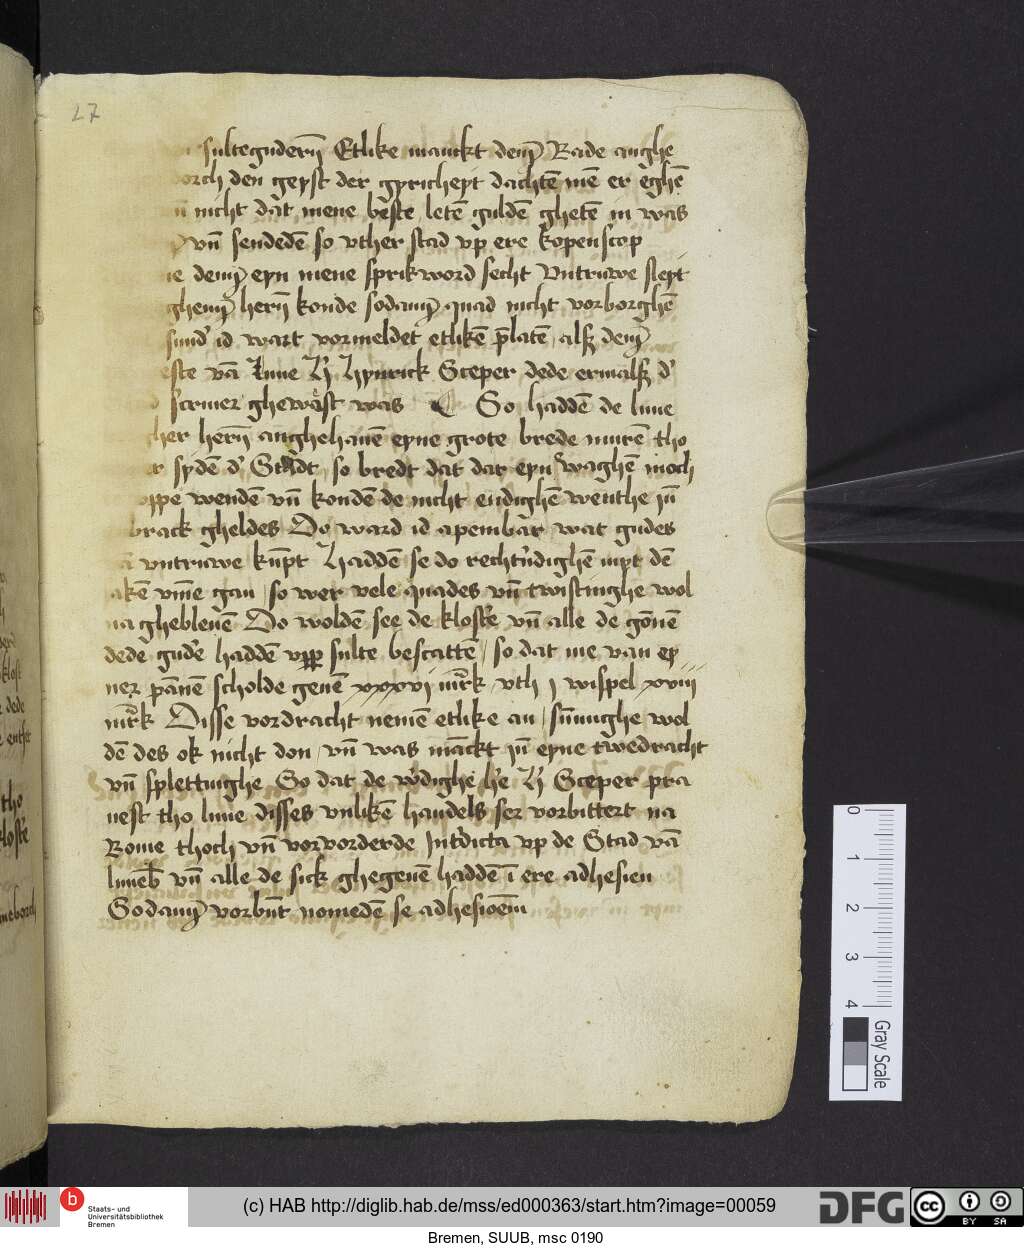 27
sultegudern̄ Etlike manckt dem̄ Rade anghe
dorch den geyst der gyricheyt dachtē mē er eghē
nicht dat mene beste letē guldē ghetē in was
vn̄ sendedē so vther stad vp ere kopenscop
demˀ eyn mene sprikword secht Vntruwe slept
ghemˀ hern̄ konde sodamˀ quad nicht vorborghē
sundˀ id wart vormeldet etlikē p̄latē alß demˀ
este vā Lune H̓ Hynrick Sceper dede ermalß dˀ
scriuer ghewest was So haddē de lune
her hern̄ anghehauē eyne grote brede murē tho
sydē dˀ Stadt so bredt dat dar eyn waghē moch
oppe wendē vn̄ kondē de nicht endighē wenthe in̄
brack gheldes Do ward id apembar wat gudes
vntruwe kūpt Haddē se do rechtv̓dighē myt dē
akē vm̄e gan so wer vele quades vn̄ twistinghe wol
na ghebleuē Do woldē see de klostˀe vn̄ alle de gōnē
dede gudˀe haddē vpp sulte bescattē / so dat me van ey
ner pānē scholde geuē xxxvj mrk vth j wispel xviij
mrk Disse vordracht nemē etlike an / sūmighe wol
dē des ok nicht don / vn̄ was māckt in̄ eyne twedracht
vn̄ splettinghe So dat de w̓dighe he̓ H̓ Sceper pra
uest tho lune disses vnlikē handels ser vorbittert na
Rome thoch vn̄ vorvorderde Intˀdicta vp de Stad vā
luneb̄ vn̄ alle de sick ghegeuē haddē ī ere adhesien
Sodamˀ vorbūt nomedē se adhesioēm
0 1 2 3 4
Gray Scale
b Staats- und
Universitätsbibliothek
Bremen
(c) HAB http://diglib.hab.de/mss/ed000363/start.htm?image=00059
DFG
cc BY SA
Bremen, SUUB, msc 0190